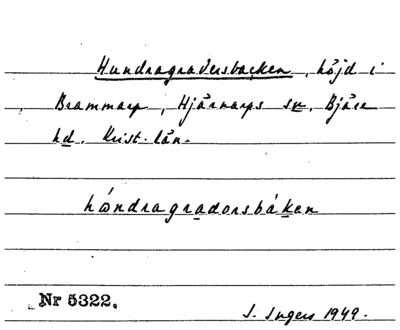 Hundragradersbacken, höjd i
Brammarp, Hjärnarps sn, Bjäre
hd. Krist. län.
hωndragradorsbáken
Nr 5322.
I. Ingers 1949.